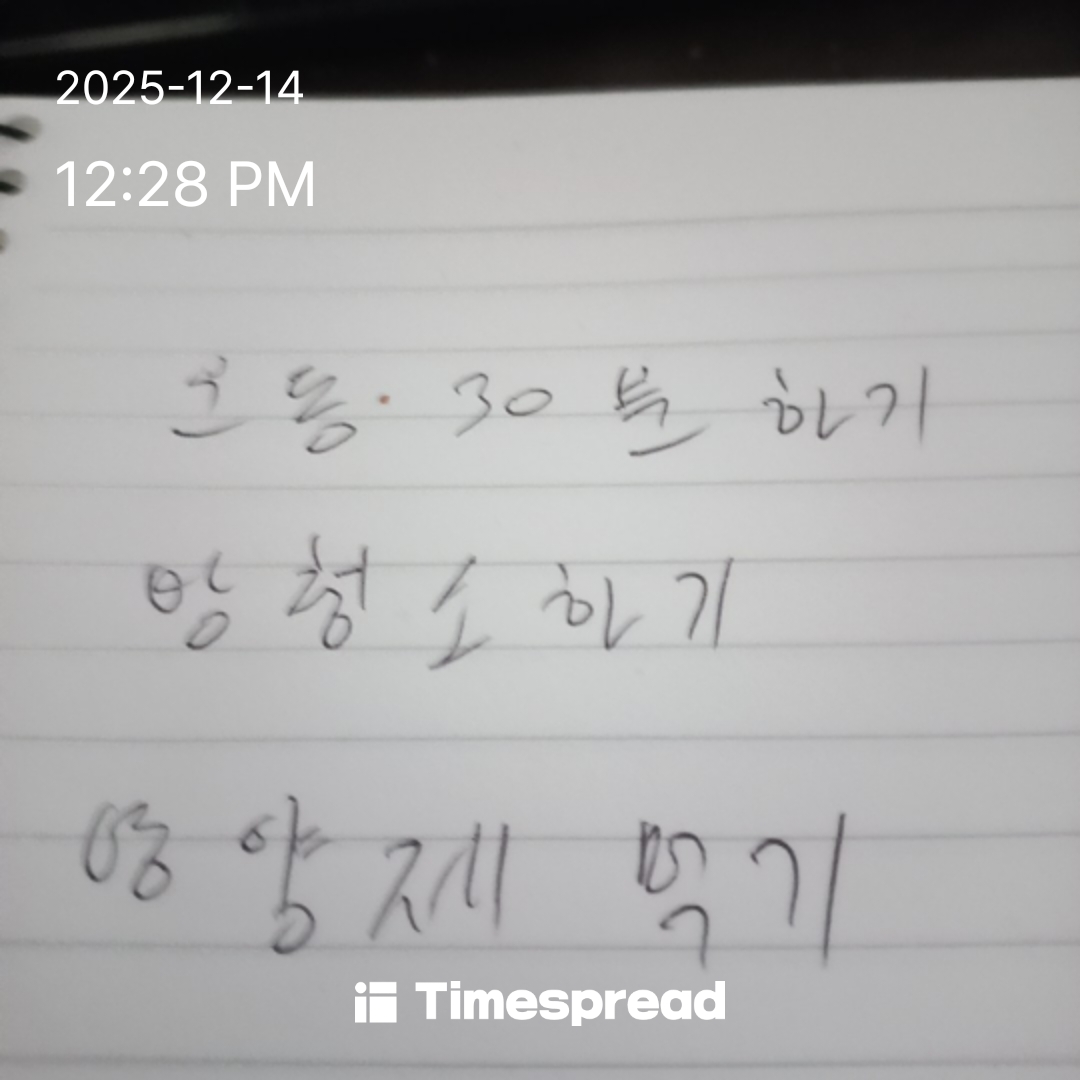 2025-12-14
12:28 PM
운동 30분 하기
방 청소하기
영양제 먹기
Timespread